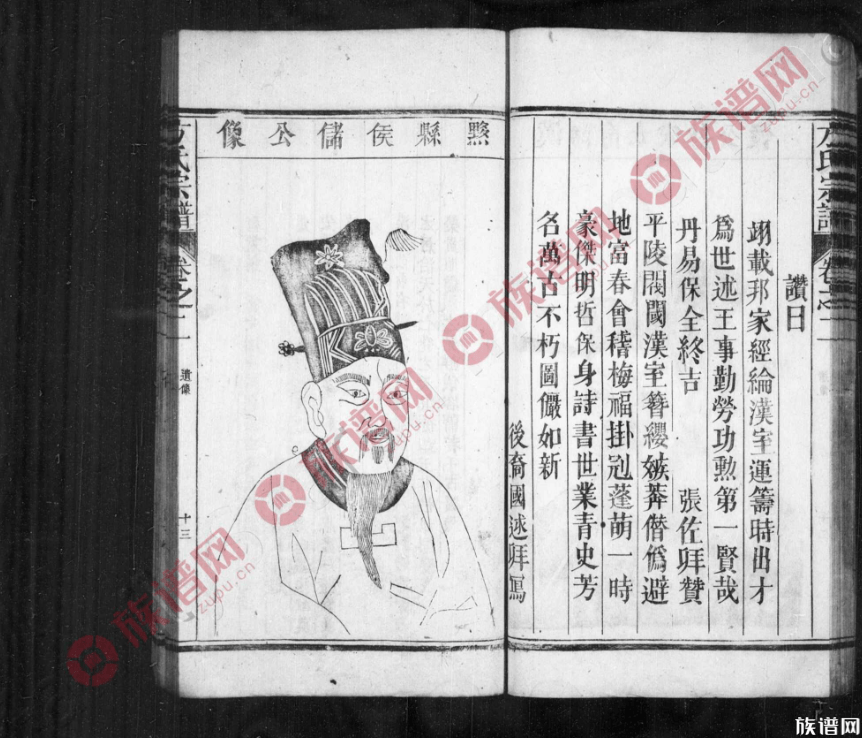 方氏宗譜
卷之二
讚曰
翊載邦家經綸漢室運籌時出才
爲世述王事勤勞功勲第一賢哉
丹易保全終吉
張佐拜贊
平陵閥閱漢室簪纓嫉莽僭僞避
地富春會稽梅福掛冠蓬萌一時
豪傑明哲保身詩書世業青史芳
名萬古不朽圖儼如新
後裔國述拜寫
黟縣侯儲公像
方氏宗譜
卷之二
遺像
十三
族谱网
zupu.cn
族谱网
zupu.cn
族谱网
zupu.cn
族谱网
zupu.cn
族谱网